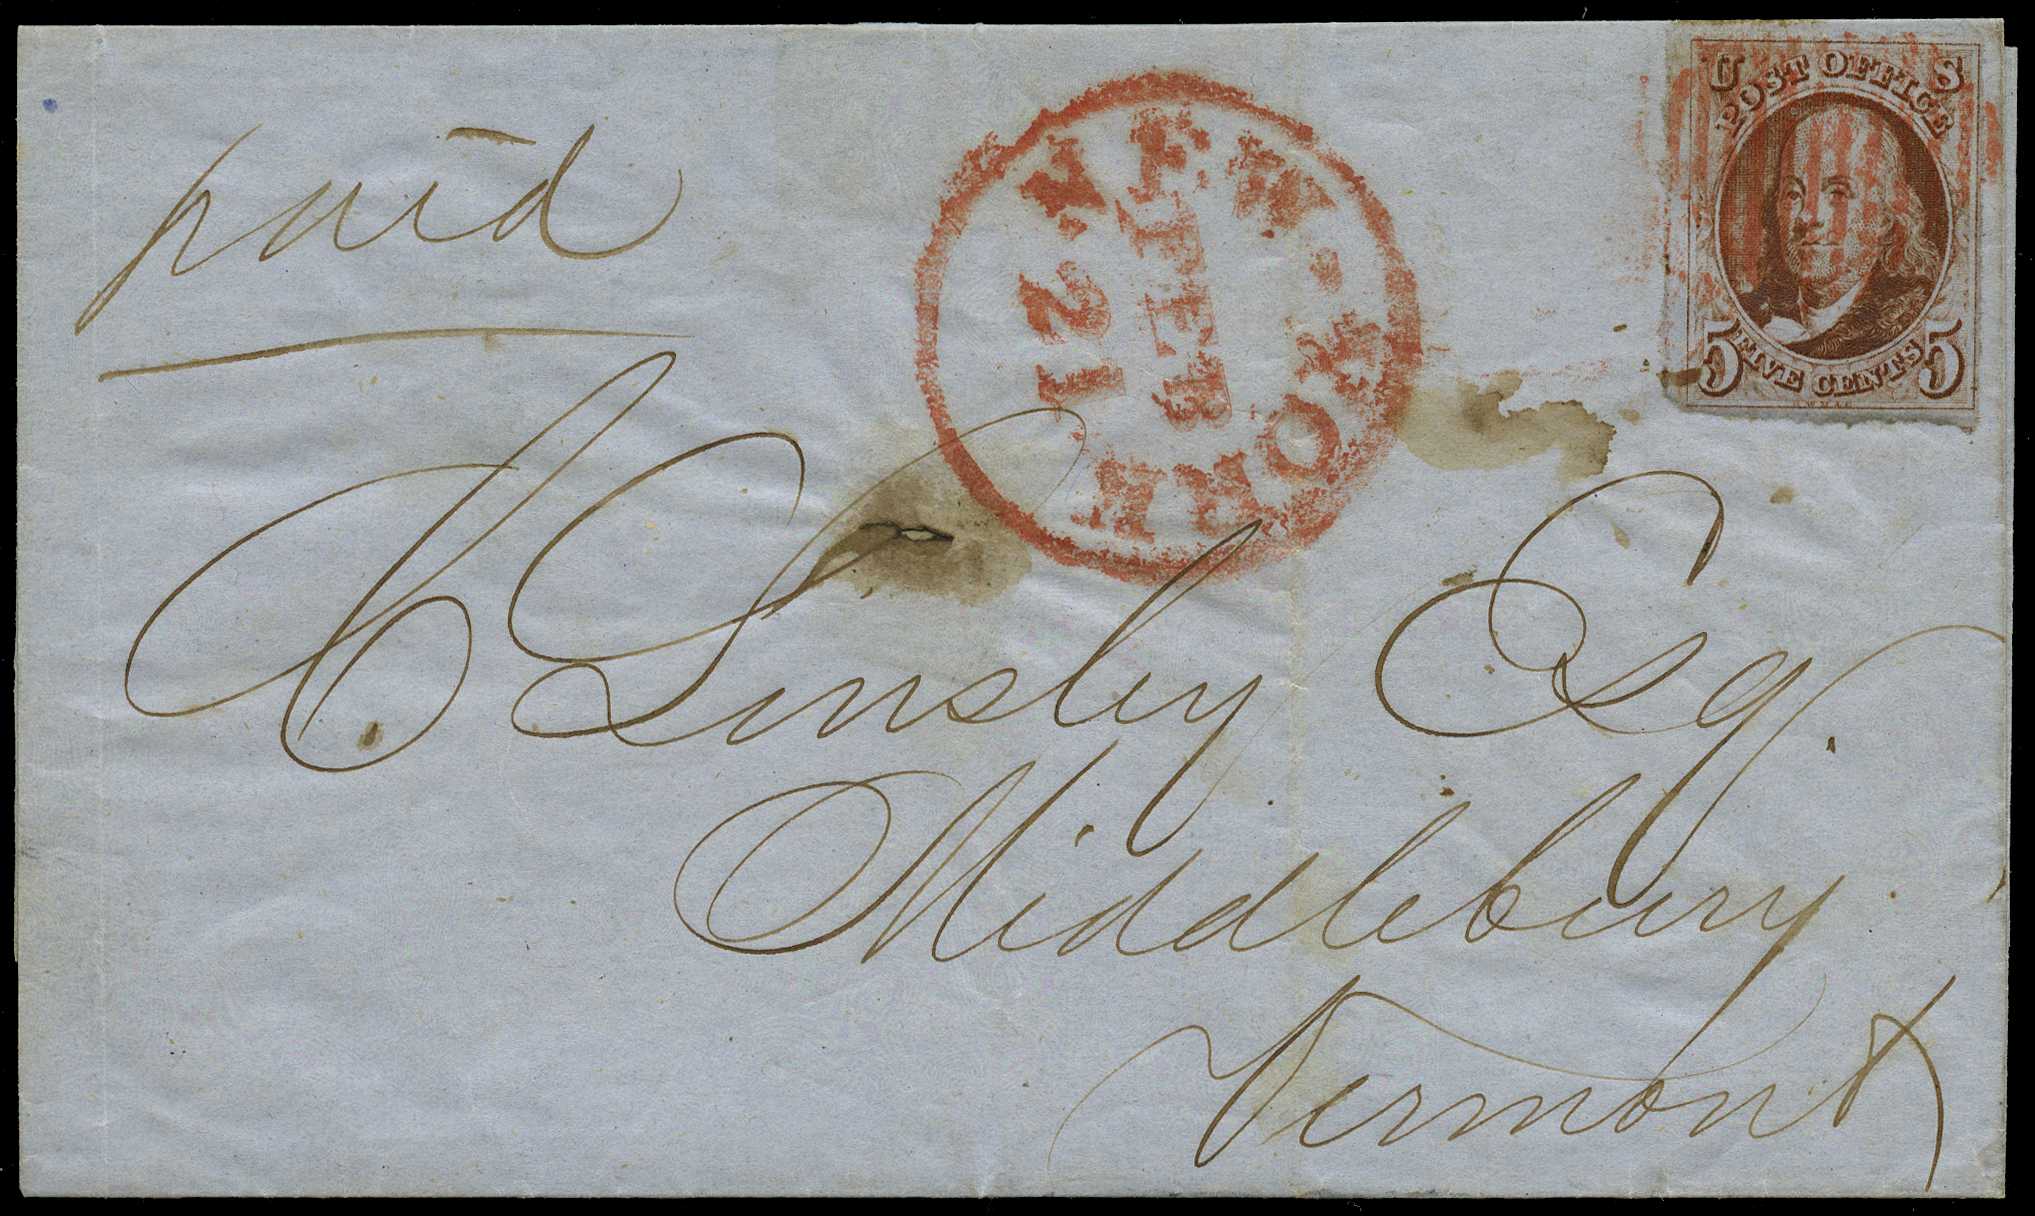 paid
U S
POST OFFICE
5 FIVE CENTS 5
NEW-YORK
FEB
21
Linsley Esq.
Middlebury
Vermont